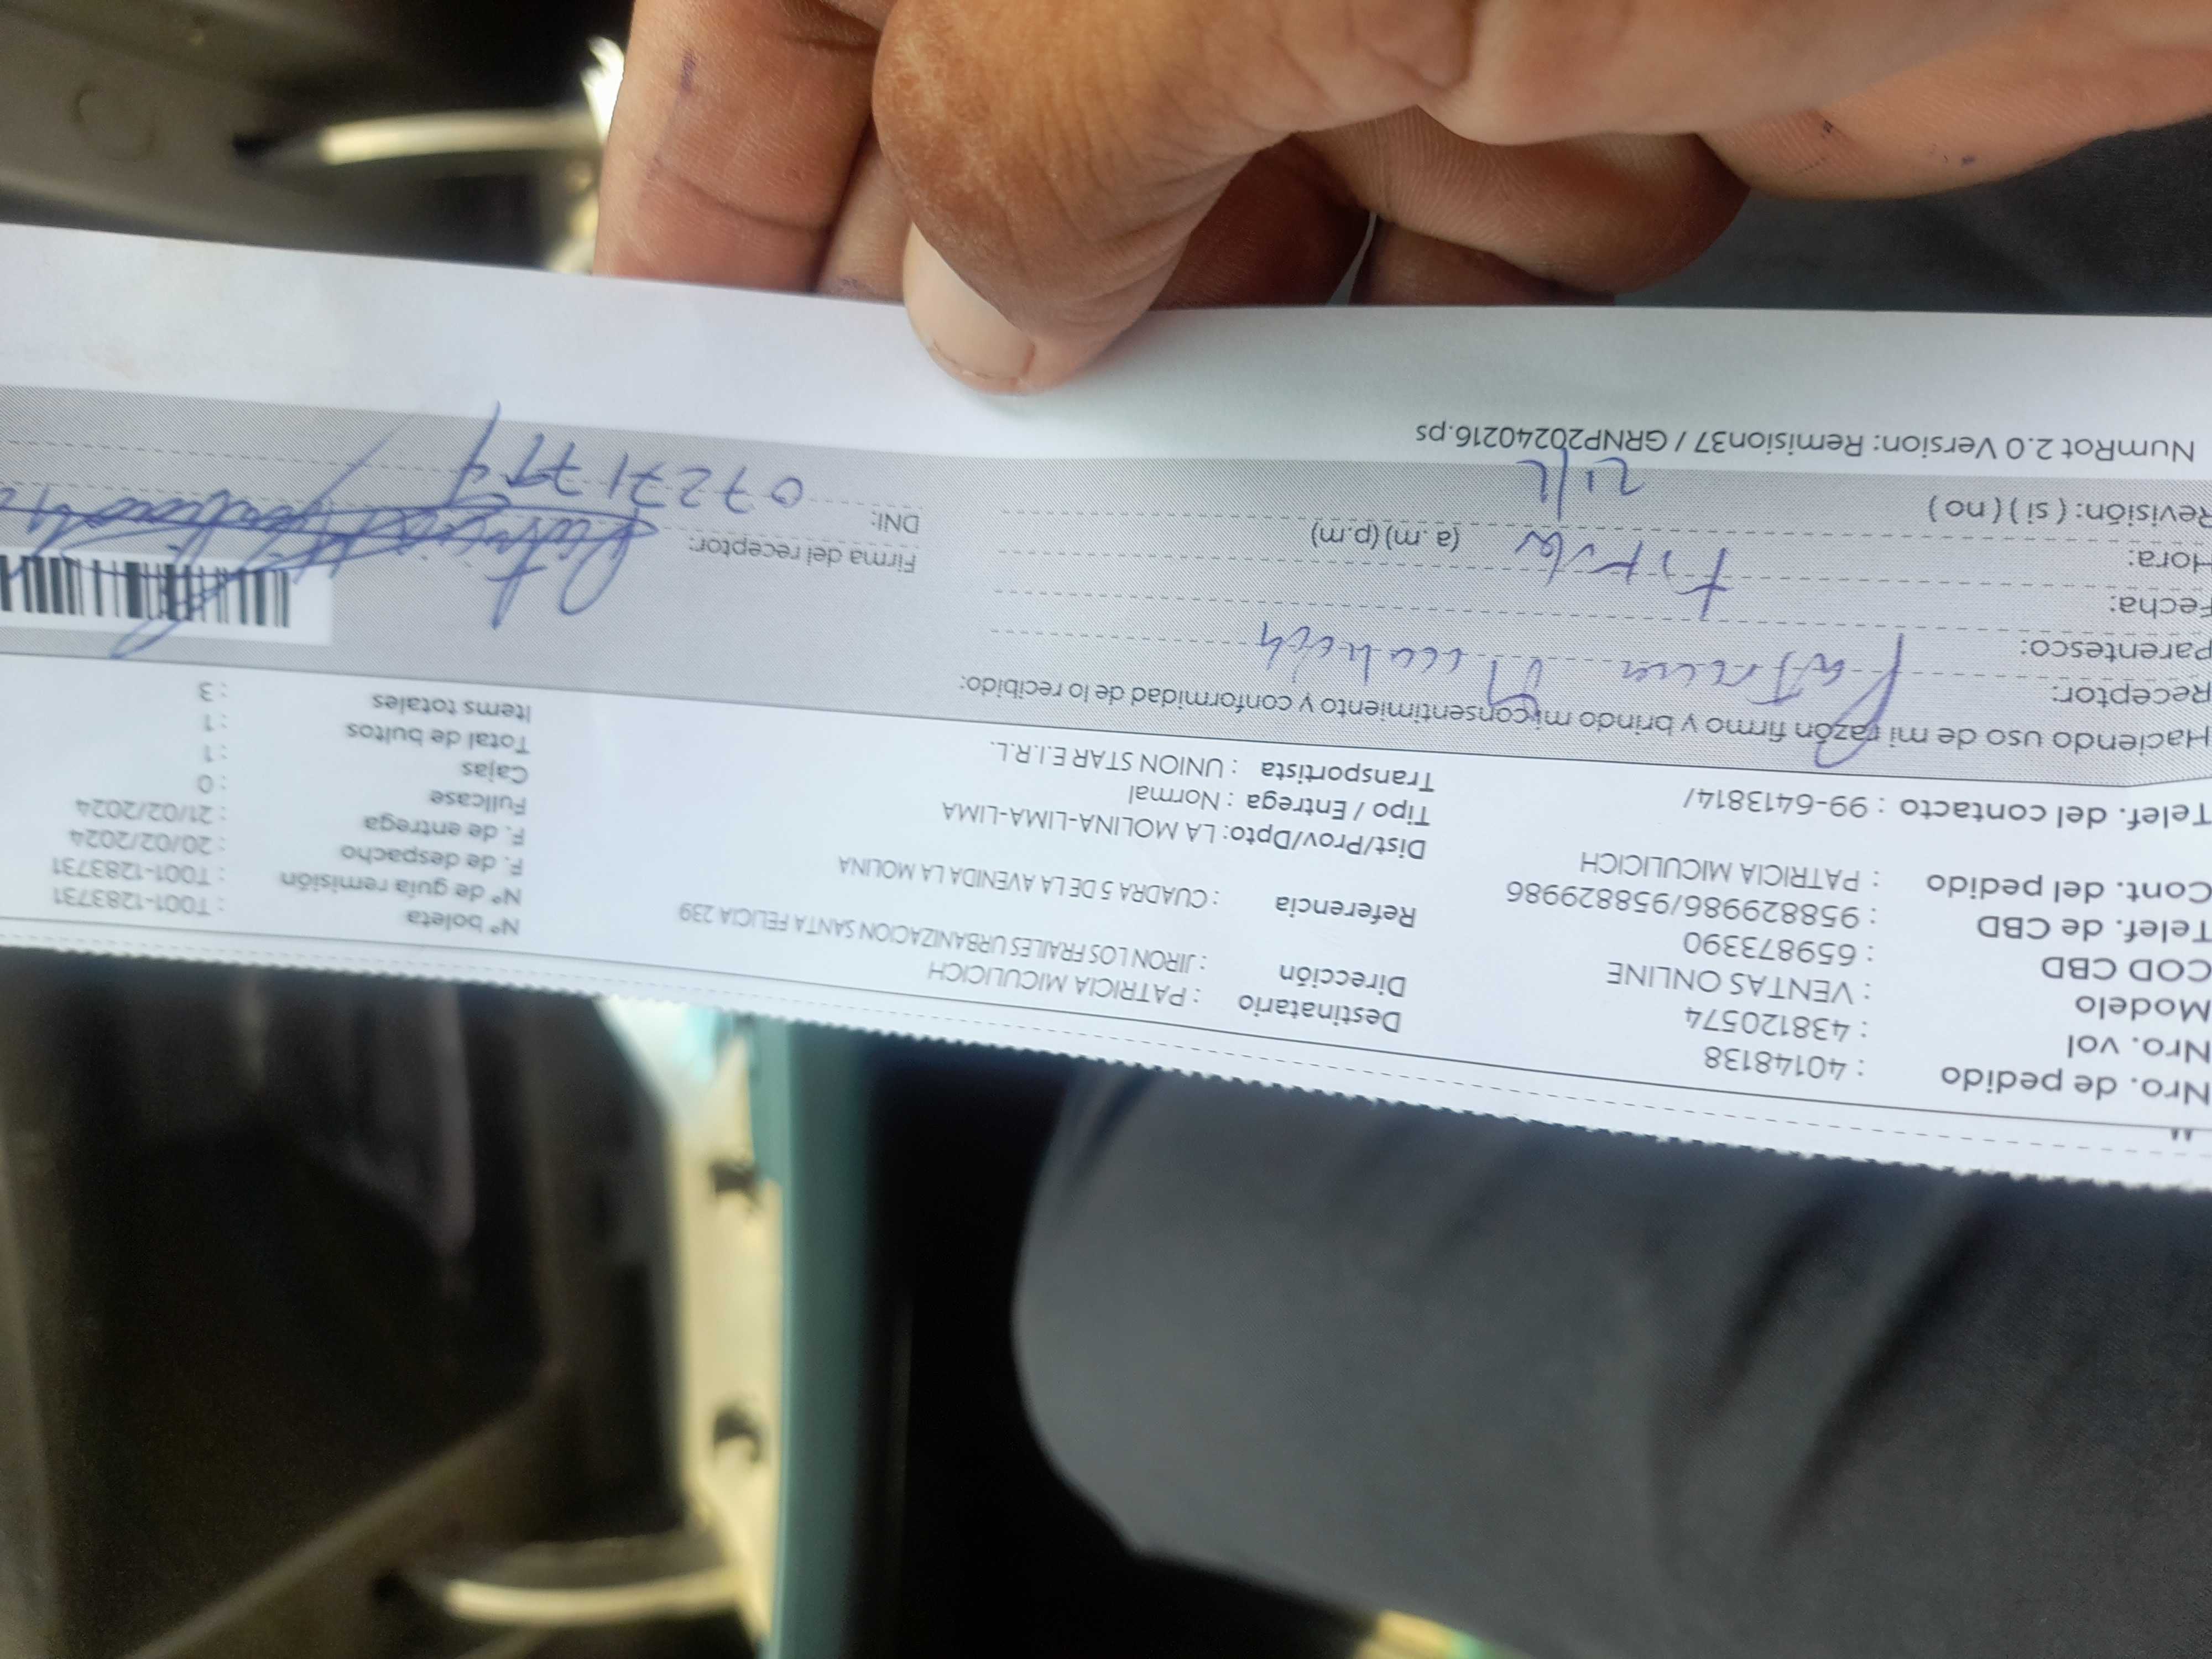 Nro. de pedido : 40148138
Nro. vol : 438120574
Modelo : VENTAS ONLINE
COD CBD : 659873390
Telef. de CBD : 958829986/958829986
Cont. del pedido : PATRICIA MICULICICH
Telef. del contacto : 99-6413814/
Destinatario : PATRICIA MICULICICH
Dirección : JIRON LOS FRAILES URBANIZACION SANTA FELICIA 239
Referencia : CUADRA 5 DE LA AVENIDA LA MOLINA
Dist/Prov/Dpto: LA MOLINA-LIMA-LIMA
Tipo / Entrega : Normal
Transportista : UNION STAR E.I.R.L.
Nº boleta : T001-1283731
Nº de guía remisión : T001-1283731
F. de despacho : 20/02/2024
F. de entrega : 21/02/2024
Fullcase : 0
Cajas : 1
Total de bultos : 1
Items totales : 3
Haciendo uso de mi razón firmo y brindo mi consentimiento y conformidad de lo recibido:
Receptor: Patricia
Parentesco:
Fecha:
Hora: (a.m) (p.m)
Revisión: ( si ) ( no )
Firma del receptor:
DNI: 07271779
NumRot 2.0 Version: Remision37 / GRNP20240216.ps